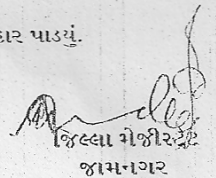 દાર પાડયું.
જિલ્લા મેજીસ્ટ્રેટ
જામનગર